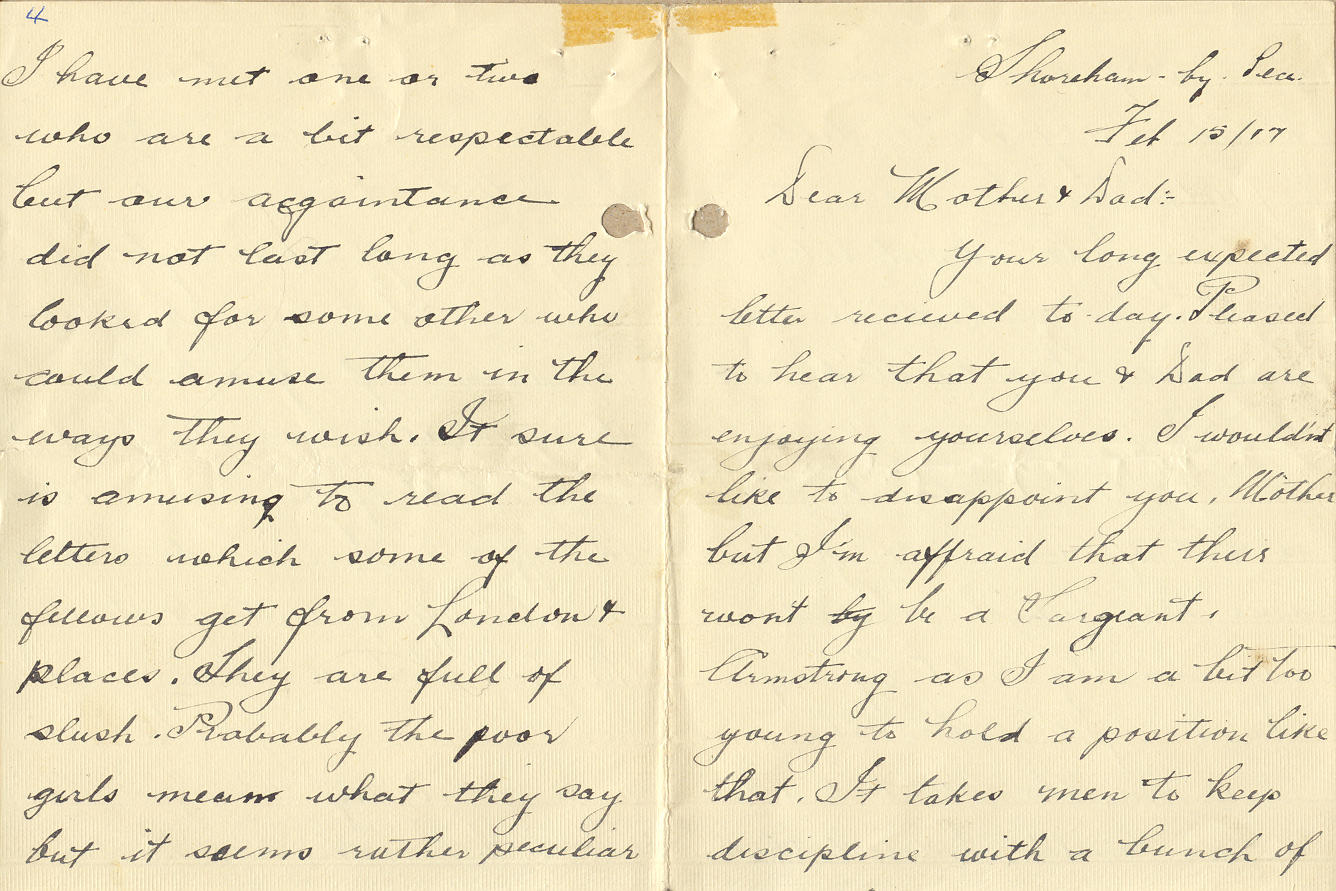 4
I have met one or two
who are a bit respectable
but our acqaintance
did not last long as they
looked for some other who
could amuse them in the
ways they wish. It sure
is amusing to read the
letters which some of the
fellows get from London &
places. They are full of
slush. Probably the poor
girls mean what they say
but it seems rather peculiar
Shoreham-by-Sea.
Feb 15/17
Dear Mother & Dad:-
Your long expected
letter recieved to-day. Pleased
to hear that you & Dad are
enjoying yourselves. I wouldn't
like to disappoint you, Mother
but I'm affraid that their
won't by be a Sargeant.
Armstrong as I am a bit too
young to hold a position like
that. It takes men to keep
discipline with a bunch of